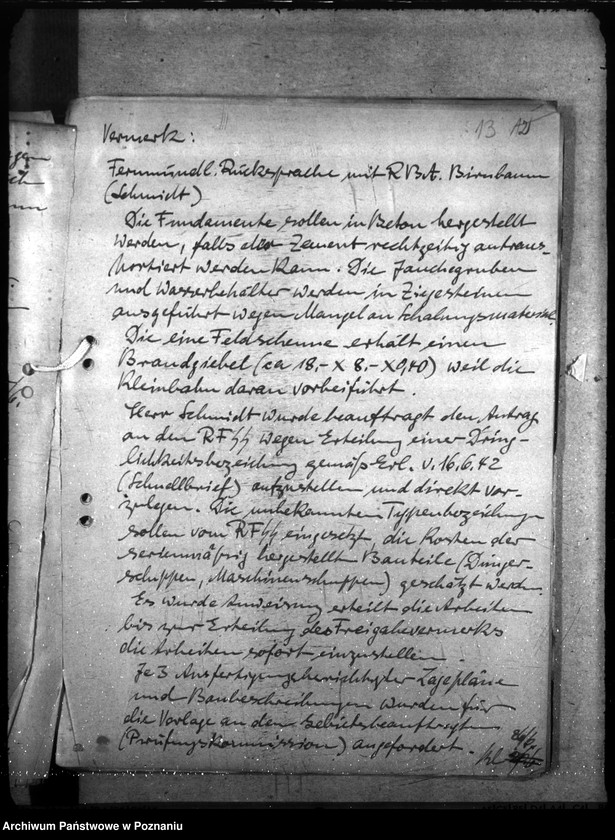 13
Vermerk:
Fernmündl. Rücksprache mit RBA. Birnbaum
(Schmidt)
Die Fundamente sollen in Beton hergestellt
werden, falls der Zement rechtzeitig antrans-
portiert werden kann. Die Jauchegruben
und Wasserbehälter werden in Ziegelsteinen
ausgeführt wegen Mangel an Schalungsmaterial.
Die eine Feldscheune erhält einen
Brandgiebel (ca 18,- x 8,- x 0,40) weil die
Kleinbahn daran vorbeiführt.
Herr Schmidt wurde beauftragt den Antrag
an den RFSS wegen Erteilung einer Dring-
lichkeitsbezeichnung gemäß Erl. v. 16.6.42
(Schnellbrief) aufzustellen und direkt vor-
zulegen. Die unbekannten Typenbezeichnungen
sollen vom RFSS eingesetzt, die Kosten der
serienmäßig hergestellt Bauteile (Dünger-
schuppen, Maschinenschuppen) geschätzt werden.
Es wurde Anweisung erteilt die Arbeiten
bis zur Erteilung des Freigabevermerks
die Arbeiten sofort einzustellen.
Je 3 Ausfertigungen berichtigter Lagepläne
und Baubeschreibungen wurden für
die Vorlage an den Gebietsbeauftragten
(Prüfungskommission) angefordert.
Archiwum Państwowe w Poznaniu
Archiwum Państwowe w Poznaniu